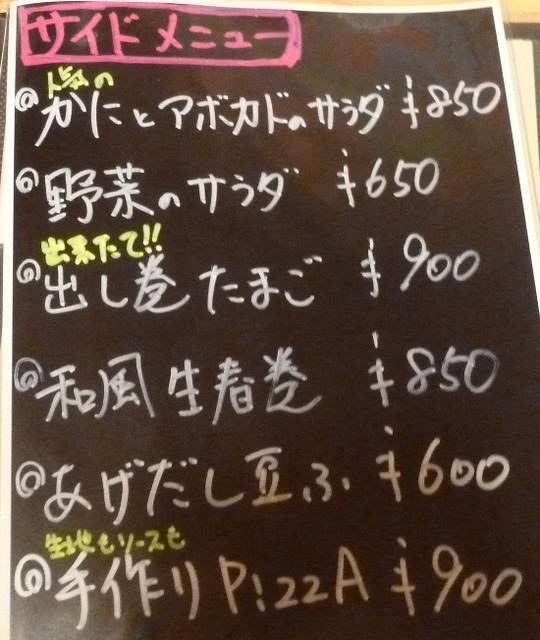 サイドメニュー
人気の
かにとアボカドのサラダ ¥850
野菜のサラダ ¥650
出来たて!!
出し巻たまご ¥900
和風生春巻 ¥850
あげだし豆ふ ¥600
生地もソースも
手作りPizzA ¥900